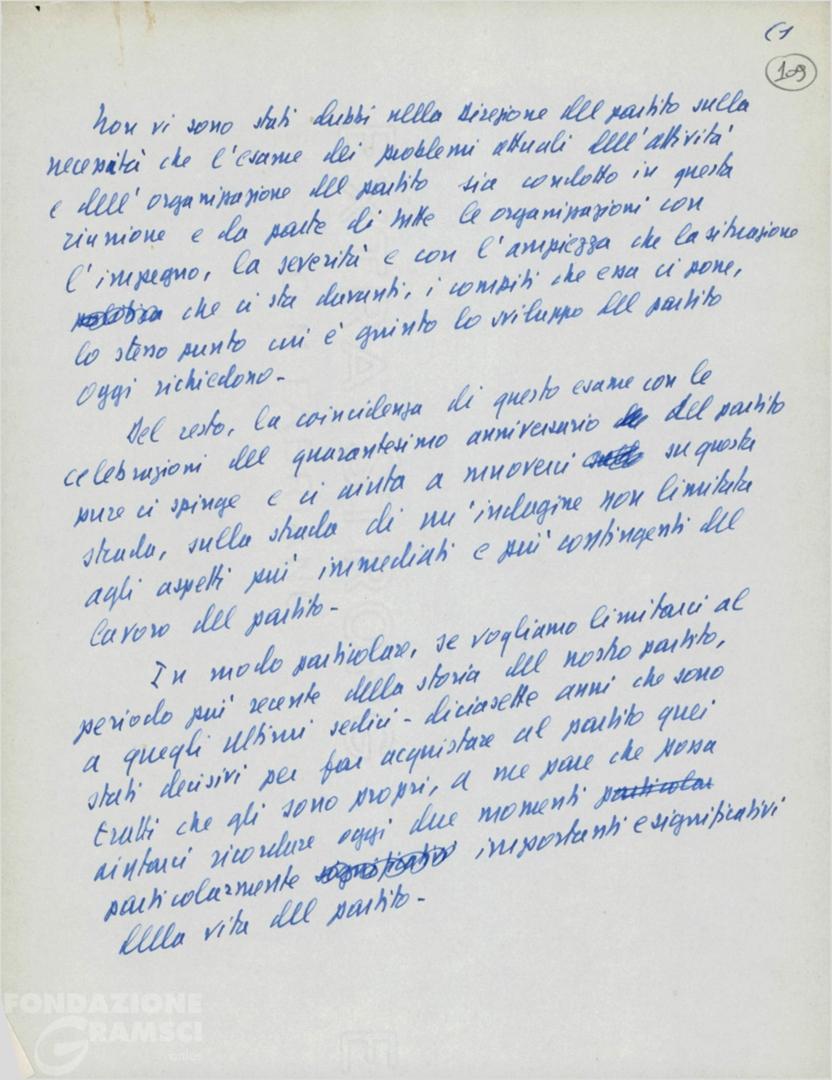 (1
109
Non vi sono stati dubbi nella Direzione del partito sulla
necessità che l'esame dei problemi attuali dell'attività
e dell'organizzazione del partito sia condotto in questa
riunione e da parte di tutte le organizzazioni con
l'impegno, la severità e con l'ampiezza che la situazione
che ci sta davanti, i compiti che essa ci pone,
lo stesso punto cui è giunto lo sviluppo del partito
oggi richiedono-
Del resto, la coincidenza di questo esame con le
celebrazioni del quarantesimo anniversario del partito
pure ci spinge e ci aiuta a muoverci su questa
strada, sulla strada di un'indagine non limitata
agli aspetti più immediati e più contingenti del
lavoro del partito-
In modo particolare, se vogliamo limitarci al
periodo più recente della storia del nostro partito,
a quegli ultimi sedici-diciasette anni che sono
stati decisivi per far acquistare al partito quei
tratti che gli sono propri, a me pare che possa
aiutarci ricordare oggi due momenti particolar
particolarmente significativi importanti e significativi
della vita del partito-
FONDAZIONE
GRAMSCI
onlus